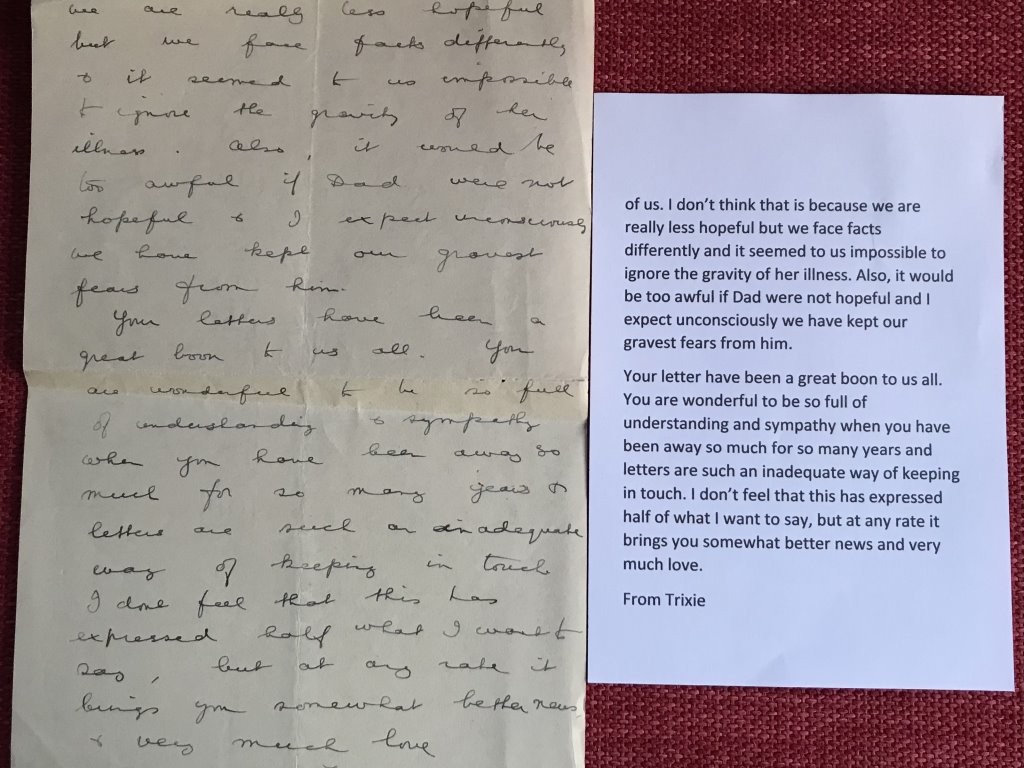 we are really less hopeful
but we face facts differently
& it seemed to us impossible
to ignore the gravity of her
illness. Also, it would be
too awful if Dad were not
hopeful & I expect unconsciously
we have kept our gravest
fears from him.
Your letters have been a
great boon to us all. You
are wonderful to be so full
of understanding & sympathy
when you have been away so
much for so many years &
letters are such an inadequate
way of keeping in touch
I dont feel that this has
expressed half what I want to
say, but at any rate it
brings you somewhat better news
& very much love
of us. I don't think that is because we are
really less hopeful but we face facts
differently and it seemed to us impossible to
ignore the gravity of her illness. Also, it would
be too awful if Dad were not hopeful and I
expect unconsciously we have kept our
gravest fears from him.
Your letter have been a great boon to us all.
You are wonderful to be so full of
understanding and sympathy when you have
been away so much for so many years and
letters are such an inadequate way of keeping
in touch. I don't feel that this has expressed
half of what I want to say, but at any rate it
brings you somewhat better news and very
much love.
From Trixie